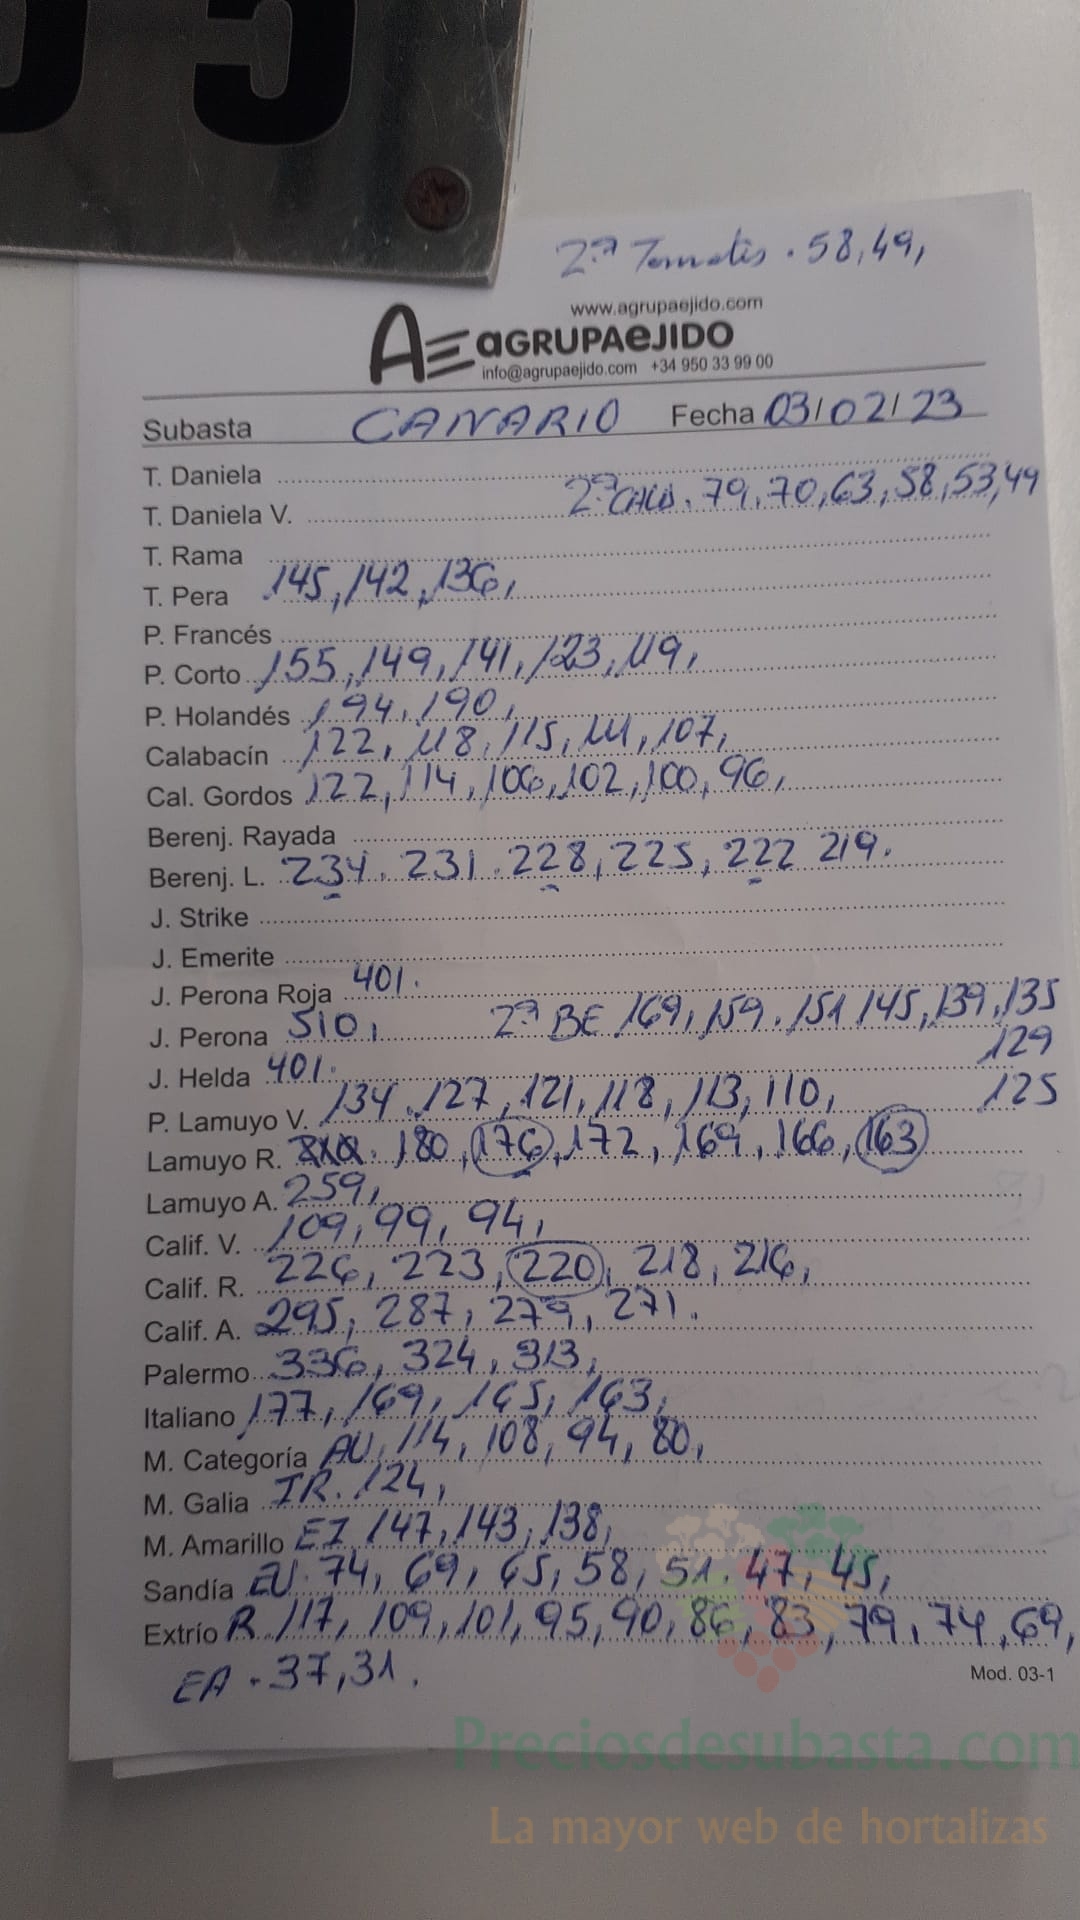 05
2ª Tomates . 58, 49,
www.agrupaejido.com
AE aGRUPAeJIDO
info@agrupaejido.com +34 950 33 99 00
Subasta CANARIO Fecha 03/02/23
T. Daniela
T. Daniela V. 2ª CALA. 79, 70, 63, 58, 53, 49
T. Rama
T. Pera 145, 142, 136,
P. Francés
P. Corto 155, 149, 141, 123, 119,
P. Holandés 194, 190,
Calabacín 122, 118, 115, 111, 107,
Cal. Gordos 122, 114, 106, 102, 100, 96,
Berenj. Rayada
Berenj. L. 234. 231. 228, 225, 222 219.
J. Strike
J. Emerite
J. Perona Roja 401.
J. Perona 510, 2ª BE 169, 159. 151 145, 139, 135
129
J. Helda 401.
125
P. Lamuyo V. 134. 127, 121, 118, 113, 110,
Lamuyo R. 180, 176, 172, 169, 166, 163
Lamuyo A. 259,
Calif. V. 109, 99, 94,
Calif. R. 226, 223, 220, 218, 216,
Calif. A. 295, 287, 279, 271.
Palermo 336, 324, 313,
Italiano 177, 169, 165, 163,
M. Categoría AU, 114, 108, 94, 80,
M. Galia IR. 124,
M. Amarillo EI 147, 143, 138,
Sandía EU. 74, 69, 65, 58, 51. 47, 45,
Extrío R. 117, 109, 101, 95, 90, 86, 83, 79, 74, 69,
EA . 37, 31.
Mod. 03-1
Preciosdesubasta.com
La mayor web de hortalizas